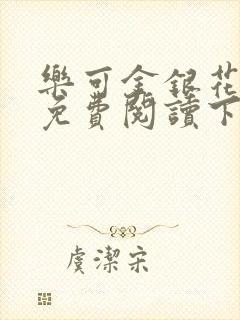 樂可金銀花
免費閱讀下
虞潔宋